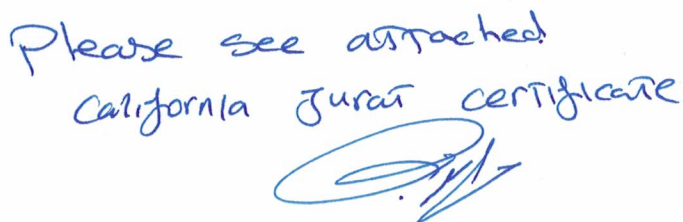 Please see attached
California Jurat certificate